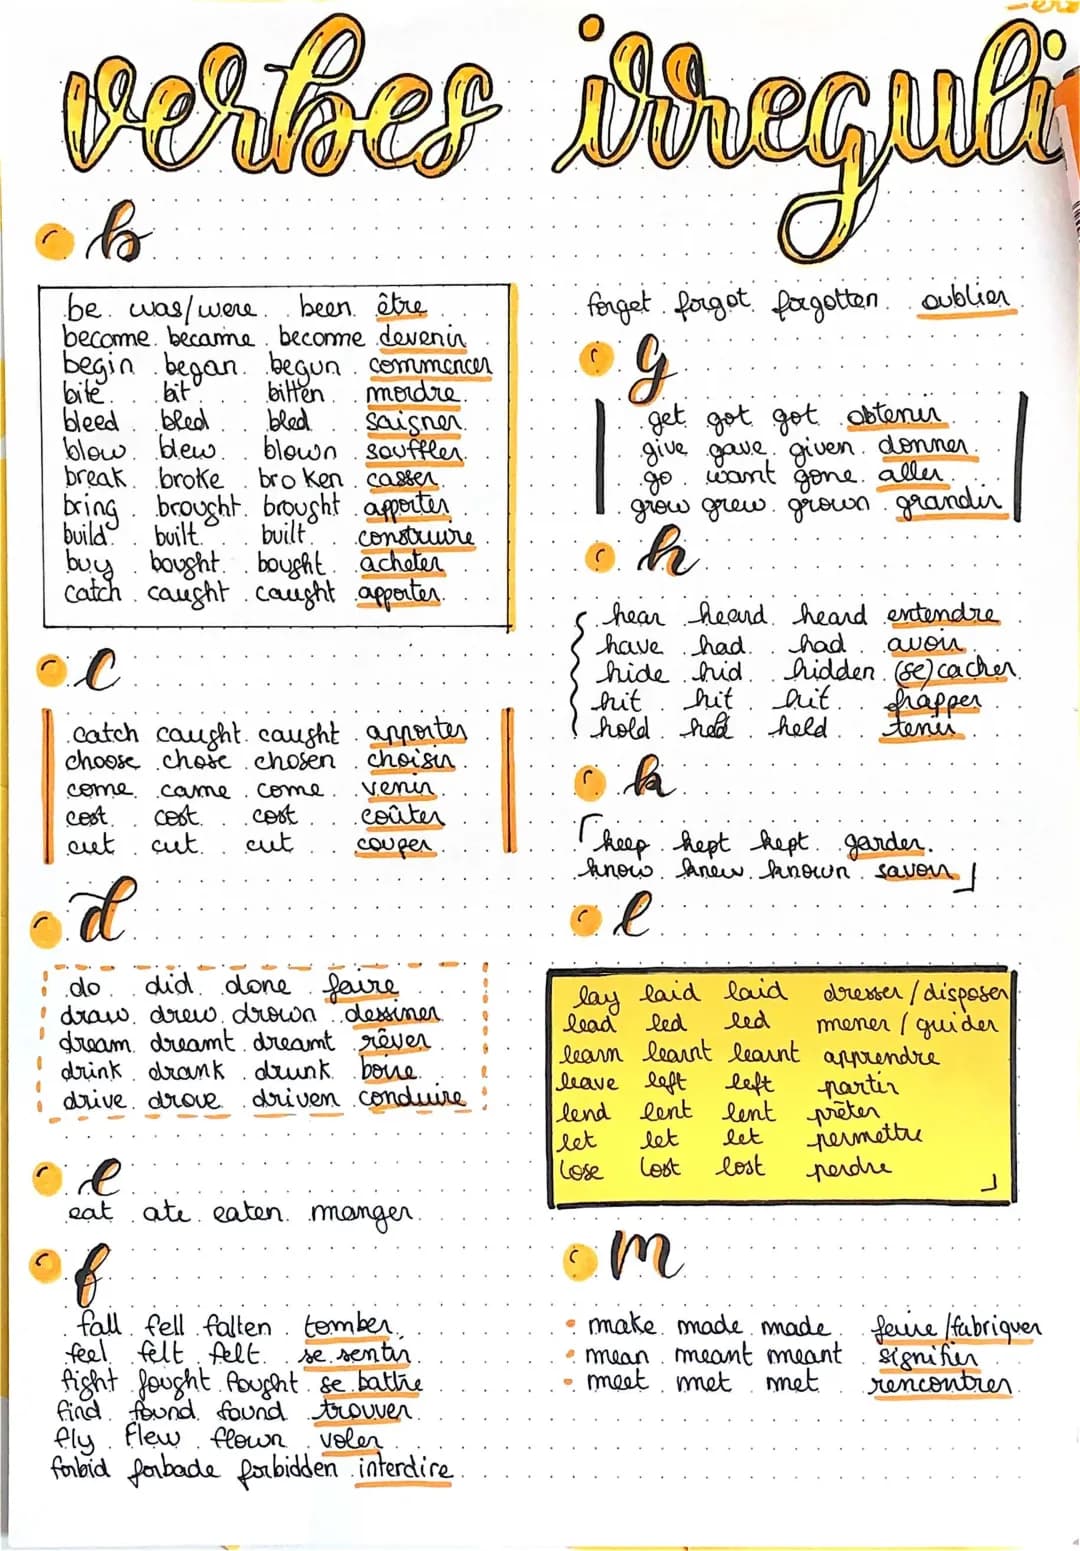 verbes irréguli
b
be was/were been être
become became become devenir
begin began begun commencer
bite bit bitten mordre
bleed bled bled saigner
blow blew blown souffler
break broke broken casser
bring brought brought apporter
build built built construire
buy bought bought acheter
catch caught caught apporter
c
catch caught caught apporter
choose chose chosen choisir
come came come venir
cost cost cost coûter
cut cut cut couper
d
do did done faire
draw drew drown dessiner
dream dreamt dreamt rêver
drink drank drunk boire
drive drove driven conduire
e
eat ate eaten manger
f
fall fell fallen tomber
feel felt felt se sentir
fight fought fought se battre
find found found trouver
fly flew flown voler
forbid forbade forbidden interdire
forget forgot forgotten oublier
g
get got got obtenir
give gave given donner
go want gone aller
grow grew grown grandir
h
hear heard heard entendre
have had had avoir
hide hid hidden (se) cacher
hit hit hit frapper
hold held held tenir
k
keep kept kept garder
know knew known savoir
l
lay laid laid dresser/disposer
lead led led mener/guider
learn learnt learnt apprendre
leave left left partir
lend lent lent prêter
let let let permettre
lose lost lost perdre
m
make made made faire/fabriquer
mean meant meant signifier
meet met met rencontrer